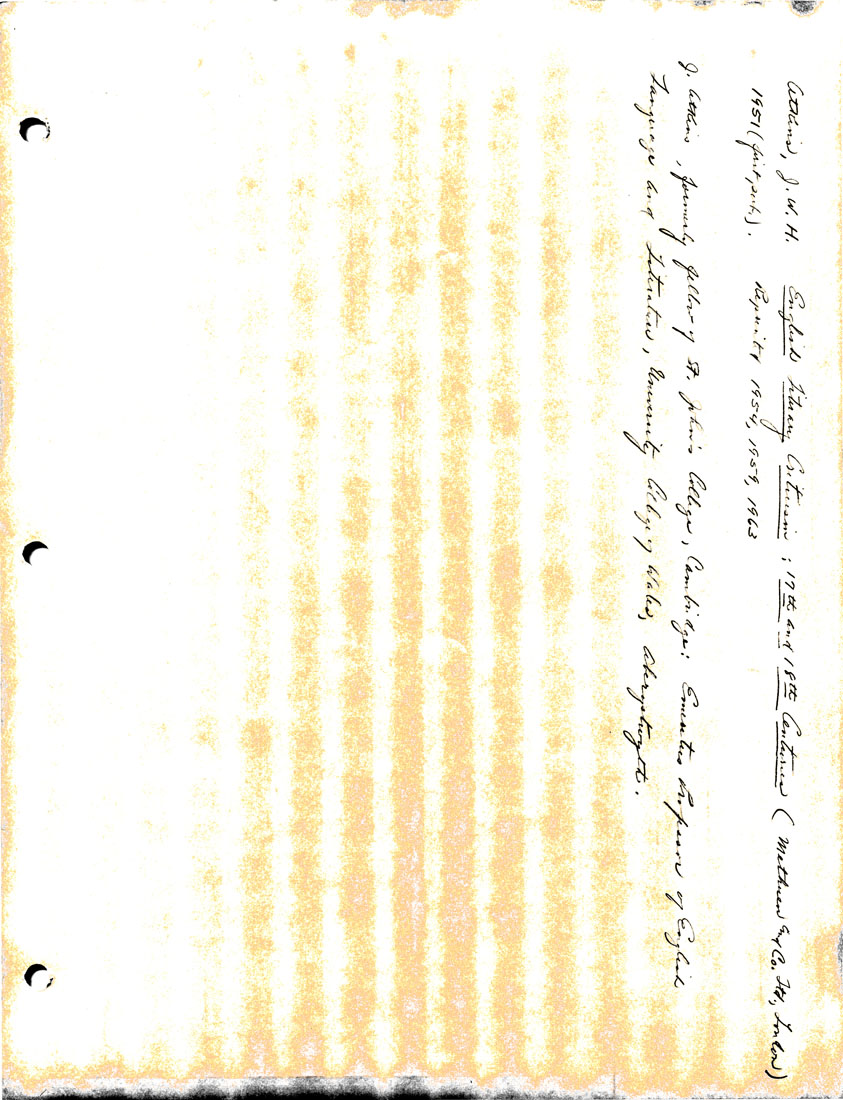 Atkins, J. W. H. English Literary Criticism : 17th and 18th Centuries ( Methuen & Co. Ltd, London)
1951 (first pub.). Reprinted 1954, 1959, 1963
J. Atkins , formerly fellow of St. John's College, Cambridge: Emeritus Professor of English
Language and Literature, University College of Wales, Aberystwyth.